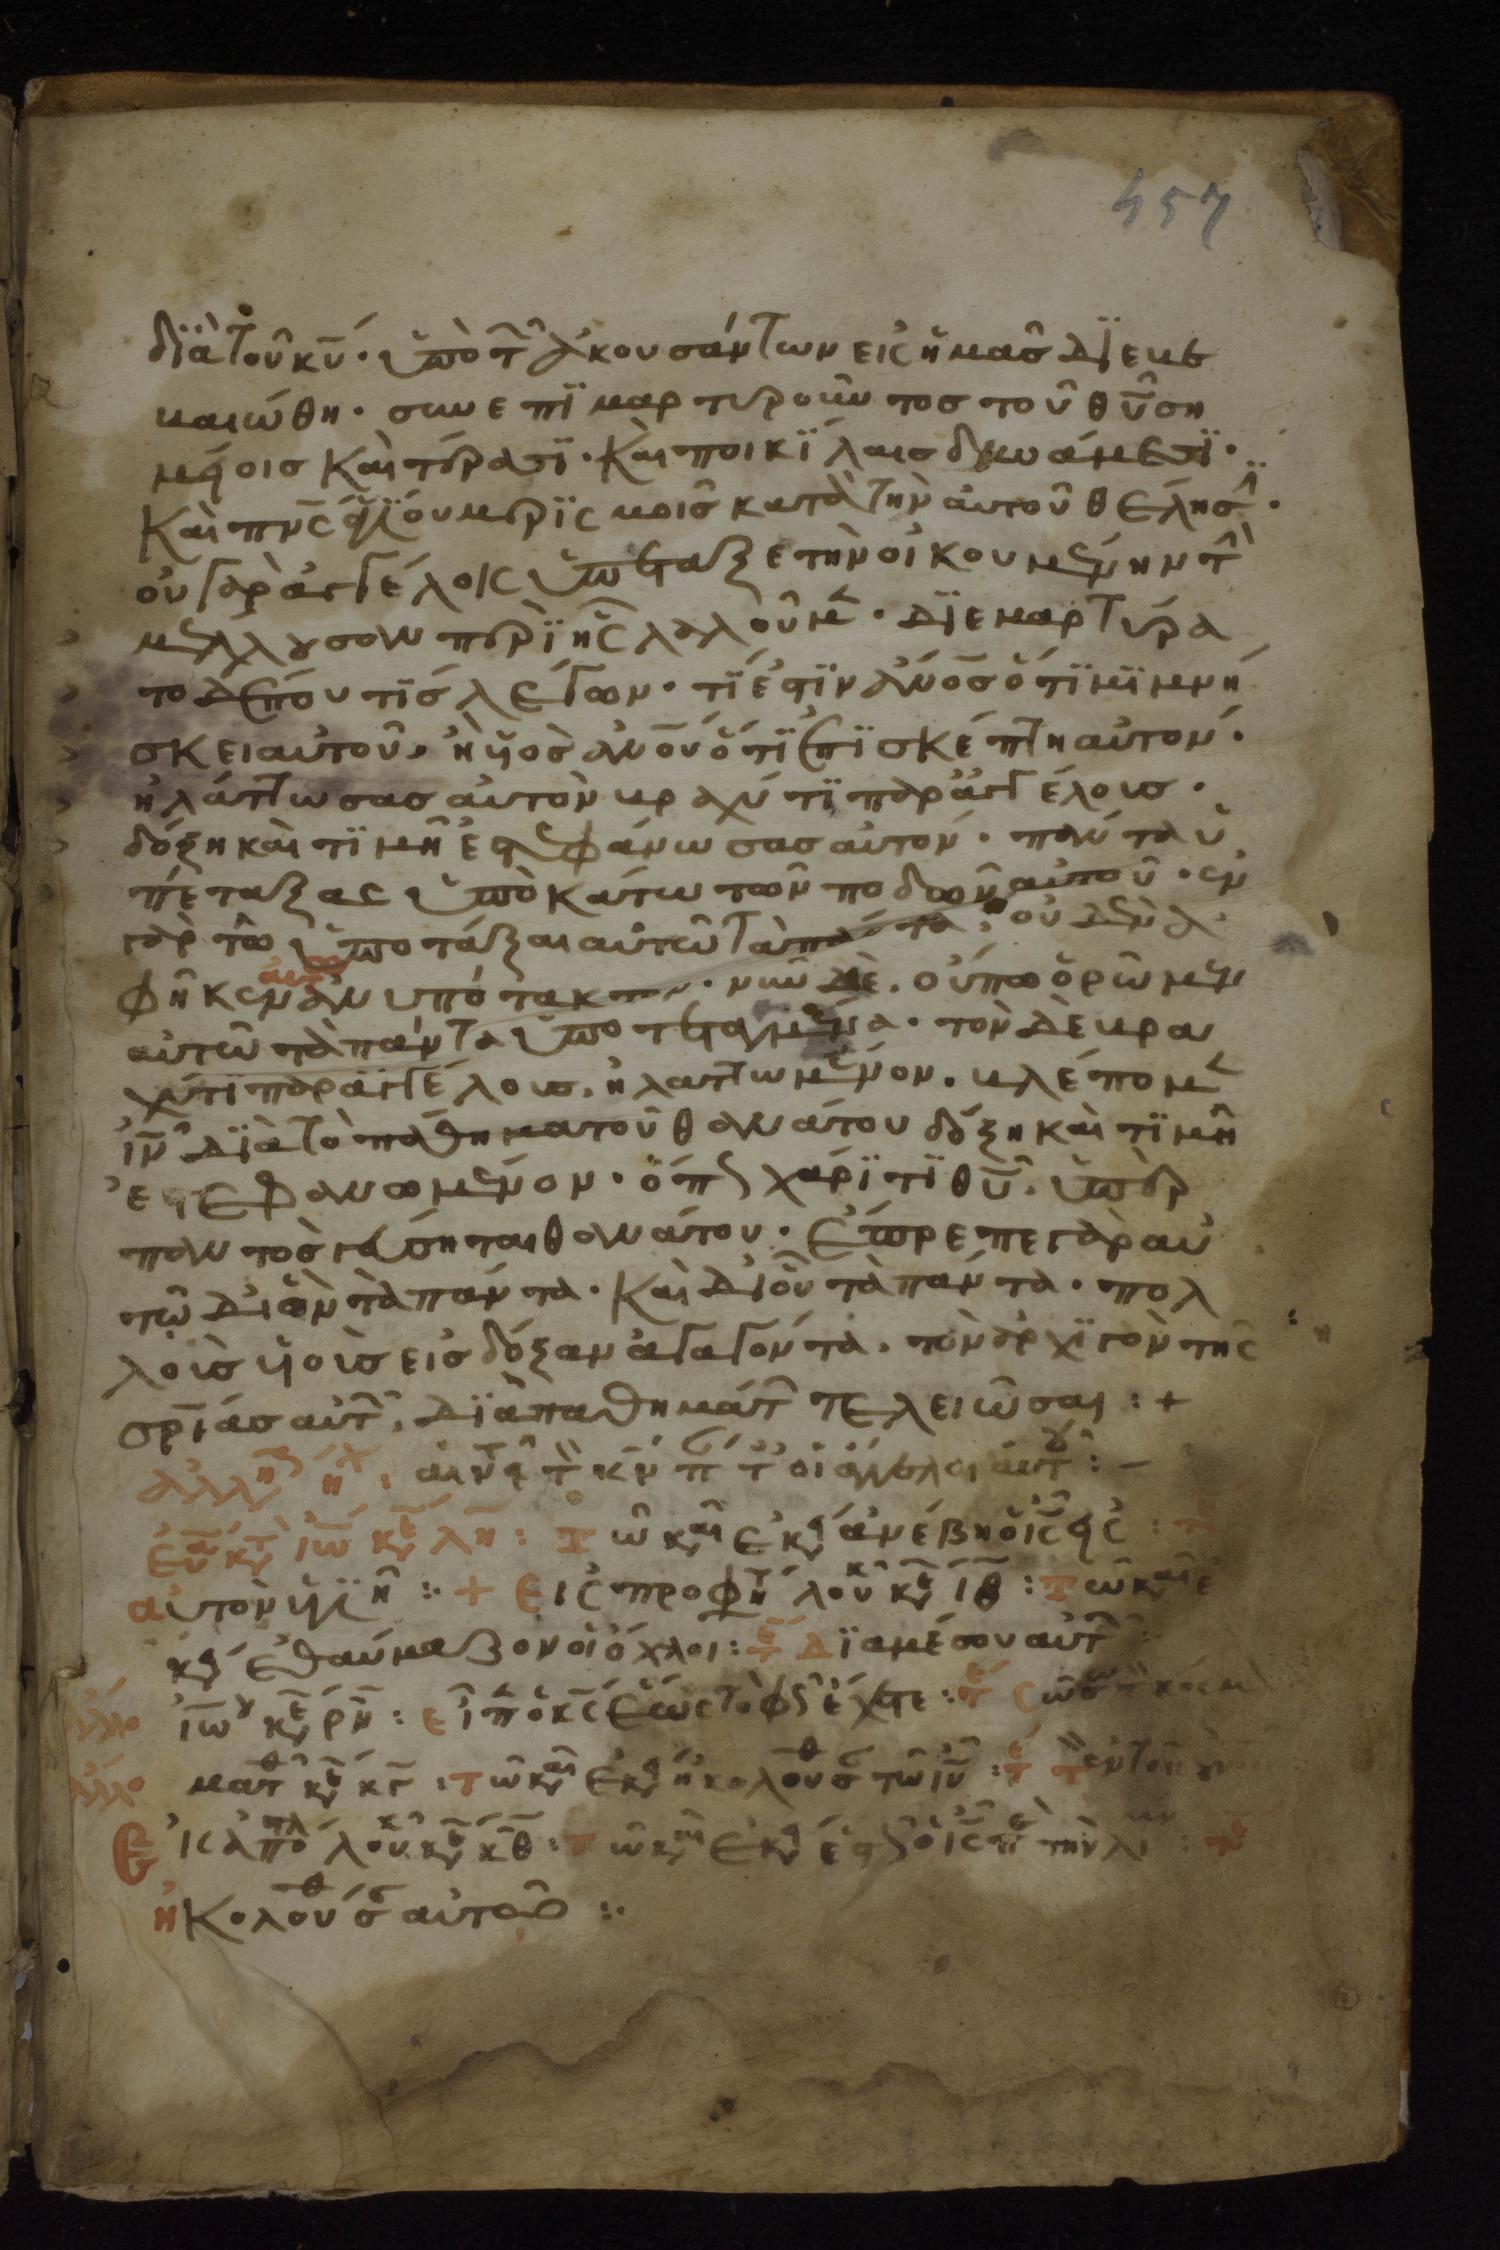 457
διὰ τοῦ κυ̅· ὑπὸ τ̅ ἀκουσάντων εἰς ἡμᾶς διεβε
βαιώθη· συνεπιμαρτυροῦντος τοῦ θυ̅ ση
μείοις καὶ τέρασι· καὶ ποικίλαις δυνάμεσι·
καὶ πν̅ς ἁγίου μερισμοῖς κατὰ τὴν αὐτοῦ θέλησ
οὐ γὰρ ἀγγέλοις ὑπέταξε τὴν οἰκουμένην τ̅
μέλλουσαν περὶ ἧς λαλοῦμ· διεμαρτύρα
το δέ που τὶς λέγων· τί ἐστιν ἀν̅ος ὅτι μιμνή
σκει αὐτοῦ· ἢ υἱὸς ἀν̅ου ὅτι ἐπισκέπτη αὐτόν·
ἠλάττωσας αὐτὸν βραχύ τι παρ ἀγγέλοις·
δόξη καὶ τιμῆ ἐστεφάνωσας αὐτόν· πάντα ὑ
πέταξας ὑποκάτω τῶν ποδῶν αὐτοῦ· ἐν
γὰρ τῶ ὑποτάξαι αὐτῶ τὰ πάντα, οὐδὲν ἀ
φῆκεν αὐτῶ ἀνυπότακτον· νῦν δὲ, οὔπω ὁρῶμεν
αὐτῶ τὰ πάντα ὑποτεταγμένα· τὸν δὲ βρα
χύ τι παρ ἀγγέλους, ἠλαττωμένον, βλέπομ
ιν̅ διὰ τὸ πάθημα τοῦ θανάτου δόξη καὶ τιμῆ
ἐστεφανωμένον· ὅπ χάριτι θυ̅, ὑπὲρ
παντὸς γεύσηται θανάτου· ἔπρεπε γὰρ αὐ
τῶ δι ὃν τὰ πάντα· καὶ δι οὗ τὰ πάντα· πολ
λοὺς υἱοὺς εἰς δόξαν ἀγαγόντα, τὸν ἀρχιγὸν τῆς
σρ̅ίας αὐτ, διὰ παθημάτ τελειῶσαι :+
αἰν τ̅ κν̅ π τ οἱ ἄγγελοι αὐτ :–
λη̅ : Τῶ κ ἐκ ἀνέβη ὁ ις̅
αὐτὸν :+ Εἰς προφήτ λουκ κε ιβ : Τῶ κ ἐ
κ ἐθαύμαζον οἱ ὄχλοι : τ Διαμέσου αὐτ
ἄλλο ιω̅ κε ρν̅ : εἶπ ὁ κς̅ ἕως τὸ φς ἔχετε : τ
ἄλλο ματθ κε κγ : τῶ κ ἐκ ἠκολούθσ τῶ ιυ̅ : τ
Εἰς ἀπο λουκ κε κθ : τῶ κ ἐκ ἔστ ὁ ις̅ π τὴν λι : τ
ἠκολούθσ αὐτῶ :·